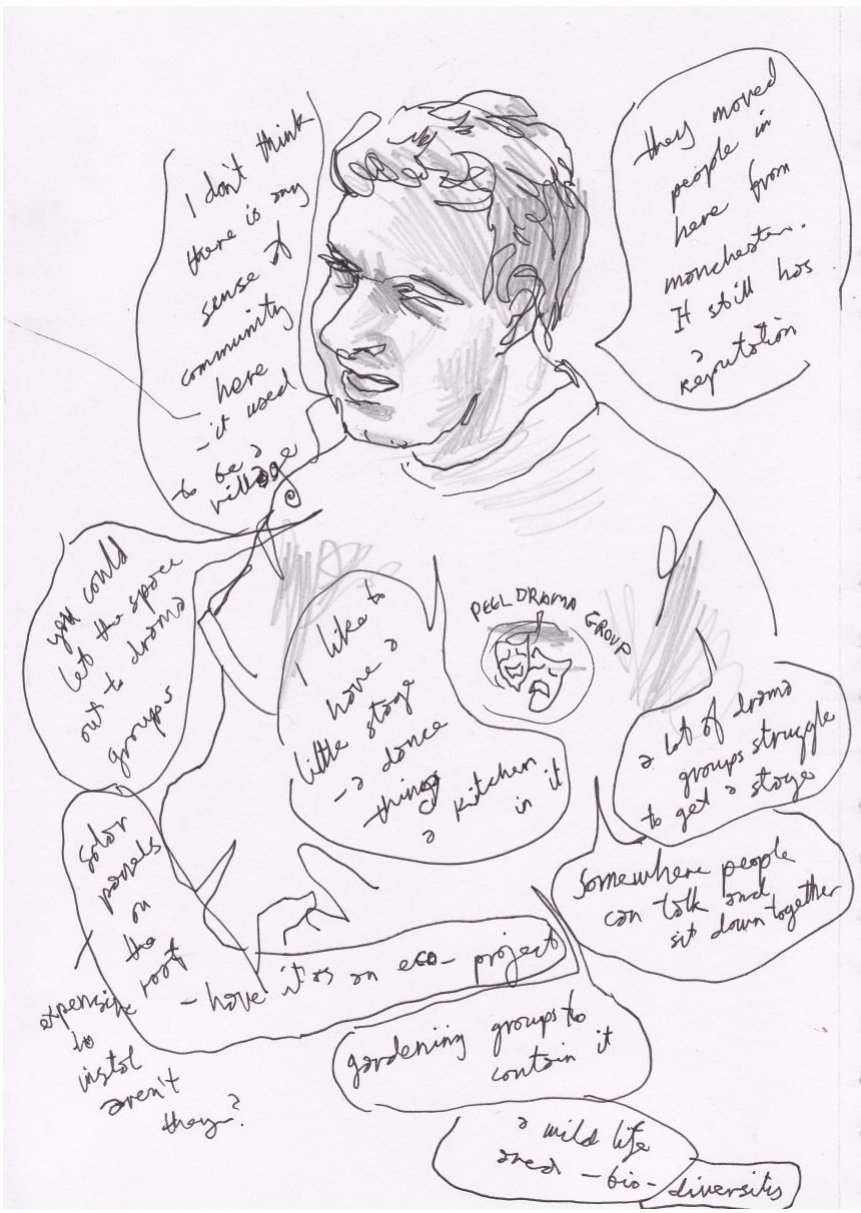 I don't think
there is any
sense of
community
here
- it used
to be a
village
they moved
people in
here from
manchester.
It still has
a
reputation
you could
let the space
out to drama
groups
I like to
have a
little stage
- a dance
thing
a kitchen
in it
PEEL DRAMA GROUP
a lot of drama
groups struggle
to get a stage
Somewhere people
can talk and
sit down together
solar
panels
on
the
roof
- have it as an eco- project
expensive
to
instal
aren't
they?
gardening groups to
contain it
a wild life
area - bio-
diversity